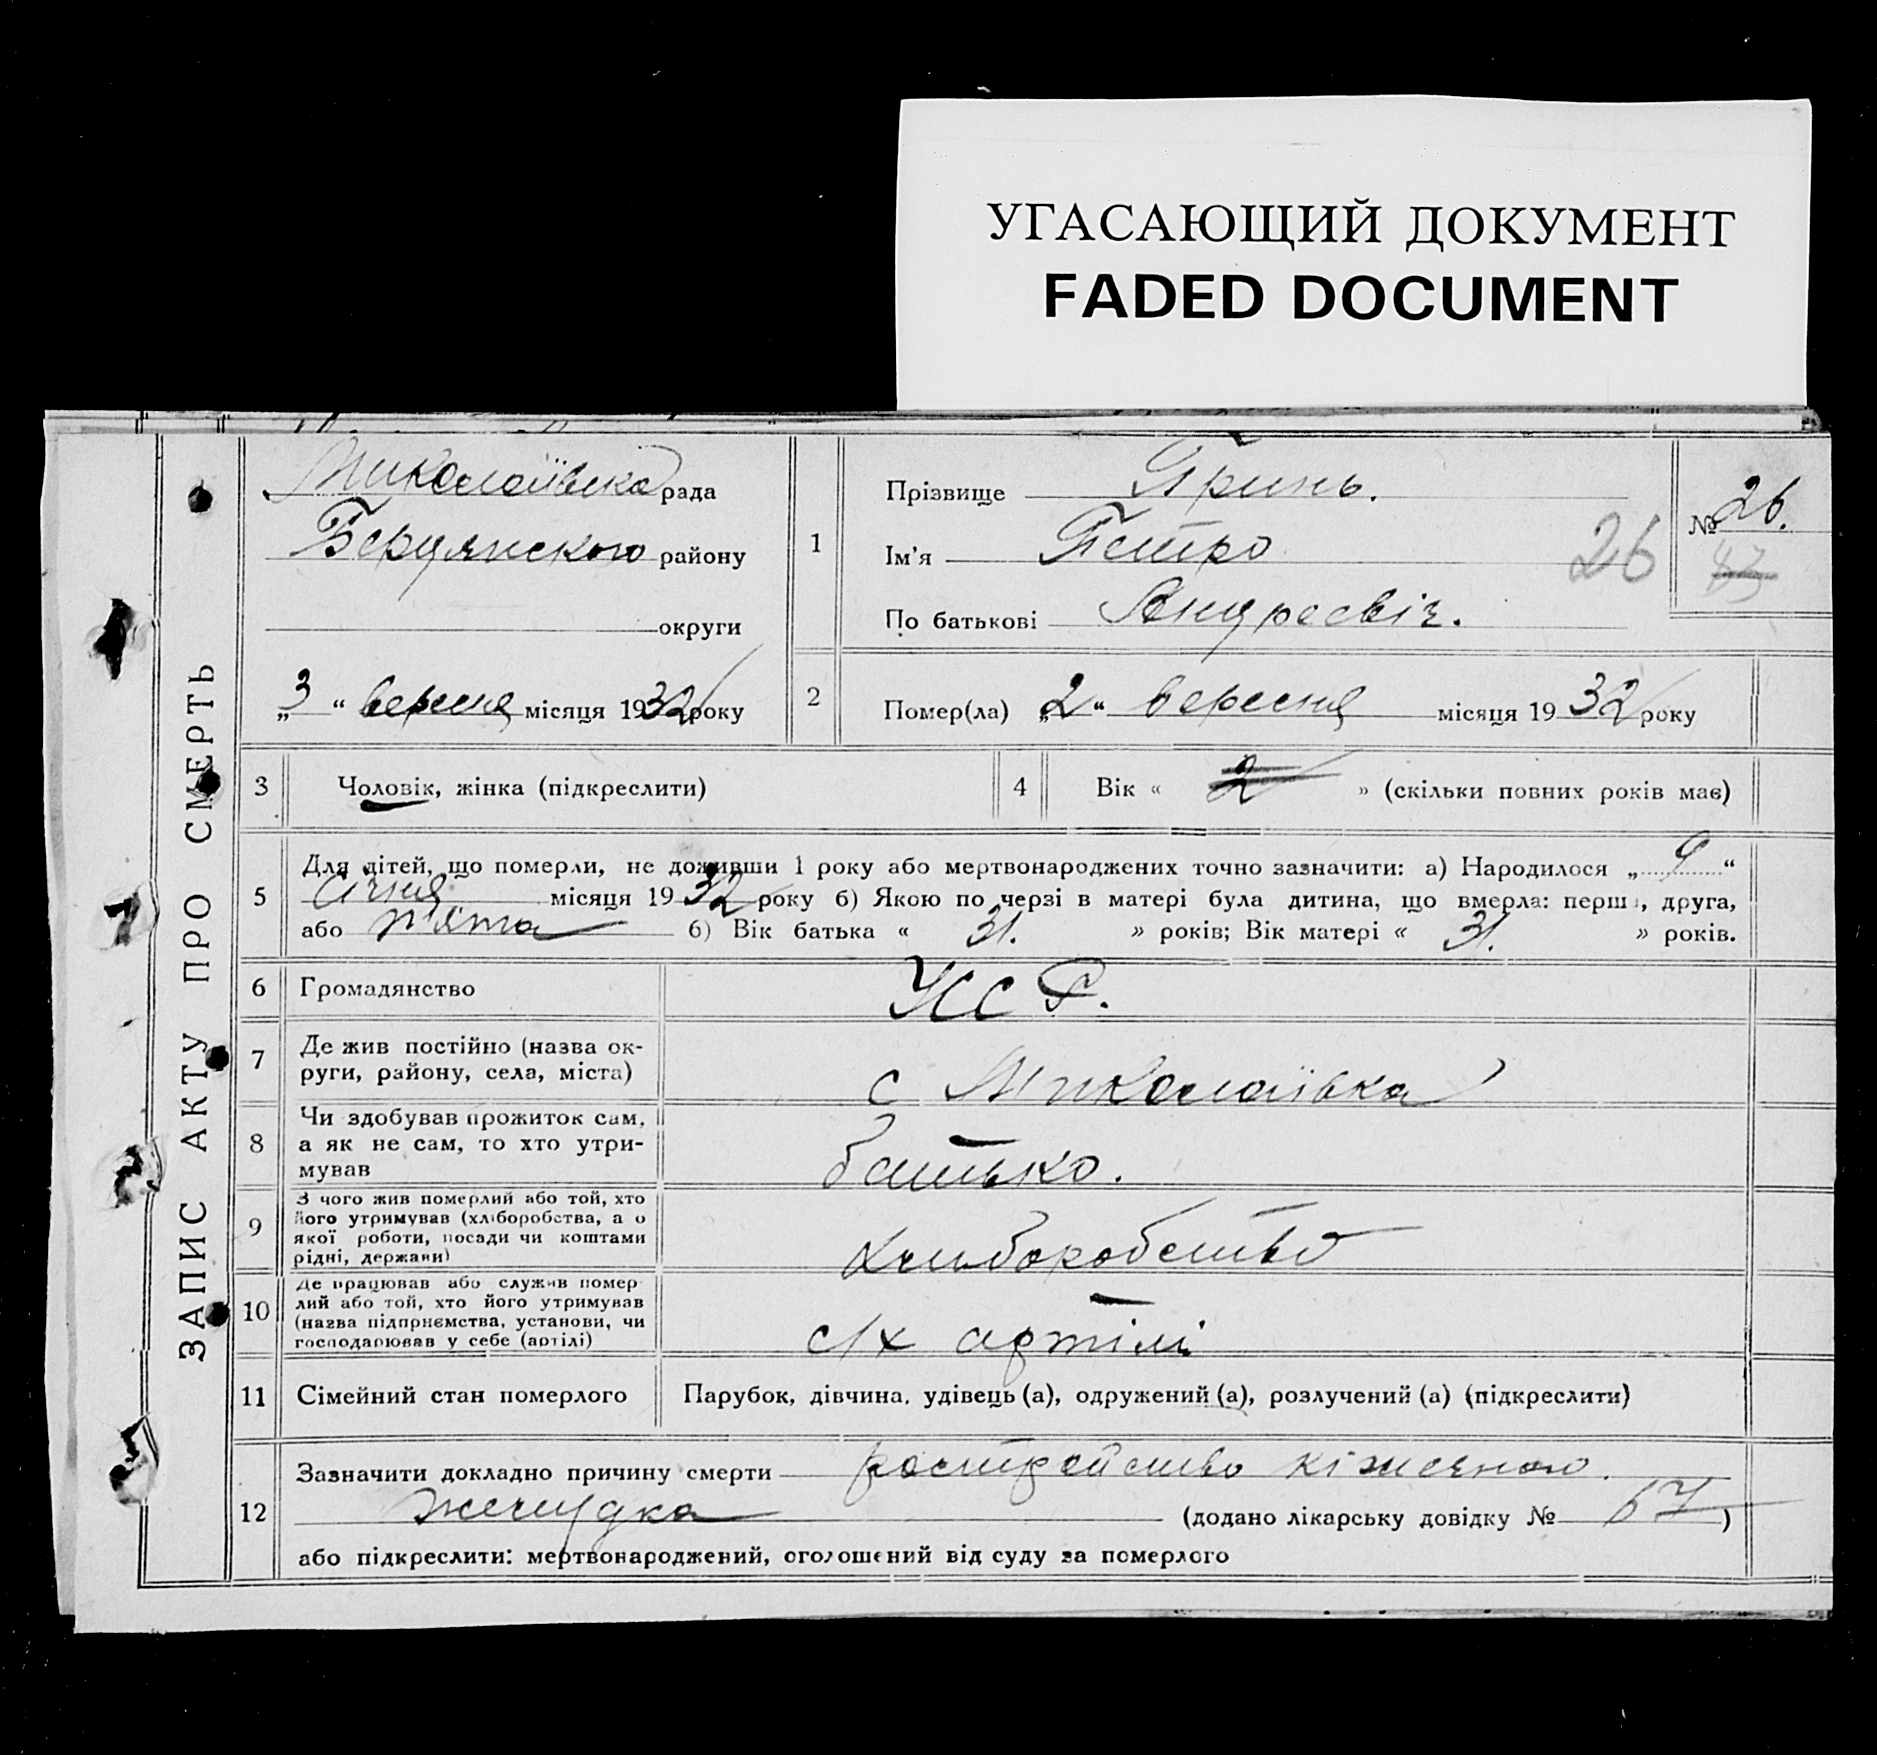 УГАСАЮЩИЙ ДОКУМЕНТ
FADED DOCUMENT
ЗАПИС АКТУ ПРО СМЕРТЬ
Миколаївська рада
Бердянского району
округи
„3“ вересня місяця 1932 року
1
Прізвище Гринь.
Ім'я Петро
По батькові Андреевіч.
26
№ 26.
2
Помер(ла) „2“ вересня місяця 1932 року
3 Чоловік, жінка (підкреслити)
4 Вік « 2 » (скільки повних років має)
5 Для дітей, що померли, не доживши 1 року або мертвонароджених точно зазначити: а) Народилося „9“
січня місяця 1932 року б) Якою по черзі в матері була дитина, що вмерла: перша, друга,
або п'ята б) Вік батька « 31. » років; Вік матері « 31. » років.
6 Громадянство УССР.
7 Де жив постійно (назва ок-
руги, району, села, міста)
с Миколаївка
8 Чи здобував прожиток сам,
а як не сам, то хто утри-
мував
батько.
9 З чого жив померлий або той, хто
його утримував (хліборобства, а о
якої роботи, посади чи коштами
рідні, держави)
хліборобство
10 Де працював або служив помер
лий або той, хто його утримував
(назва підприємства, установи, чи
господарював у себе (артілі)
с/х артілі
11 Сімейний стан померлого Парубок, дівчина, удівець (а), одружений (а), розлучений (а) (підкреслити)
12 Зазначити докладно причину смерти
желудка (додано лікарську довідку № 67)
або підкреслити: мертвонароджений, оголошений від суду за померлого